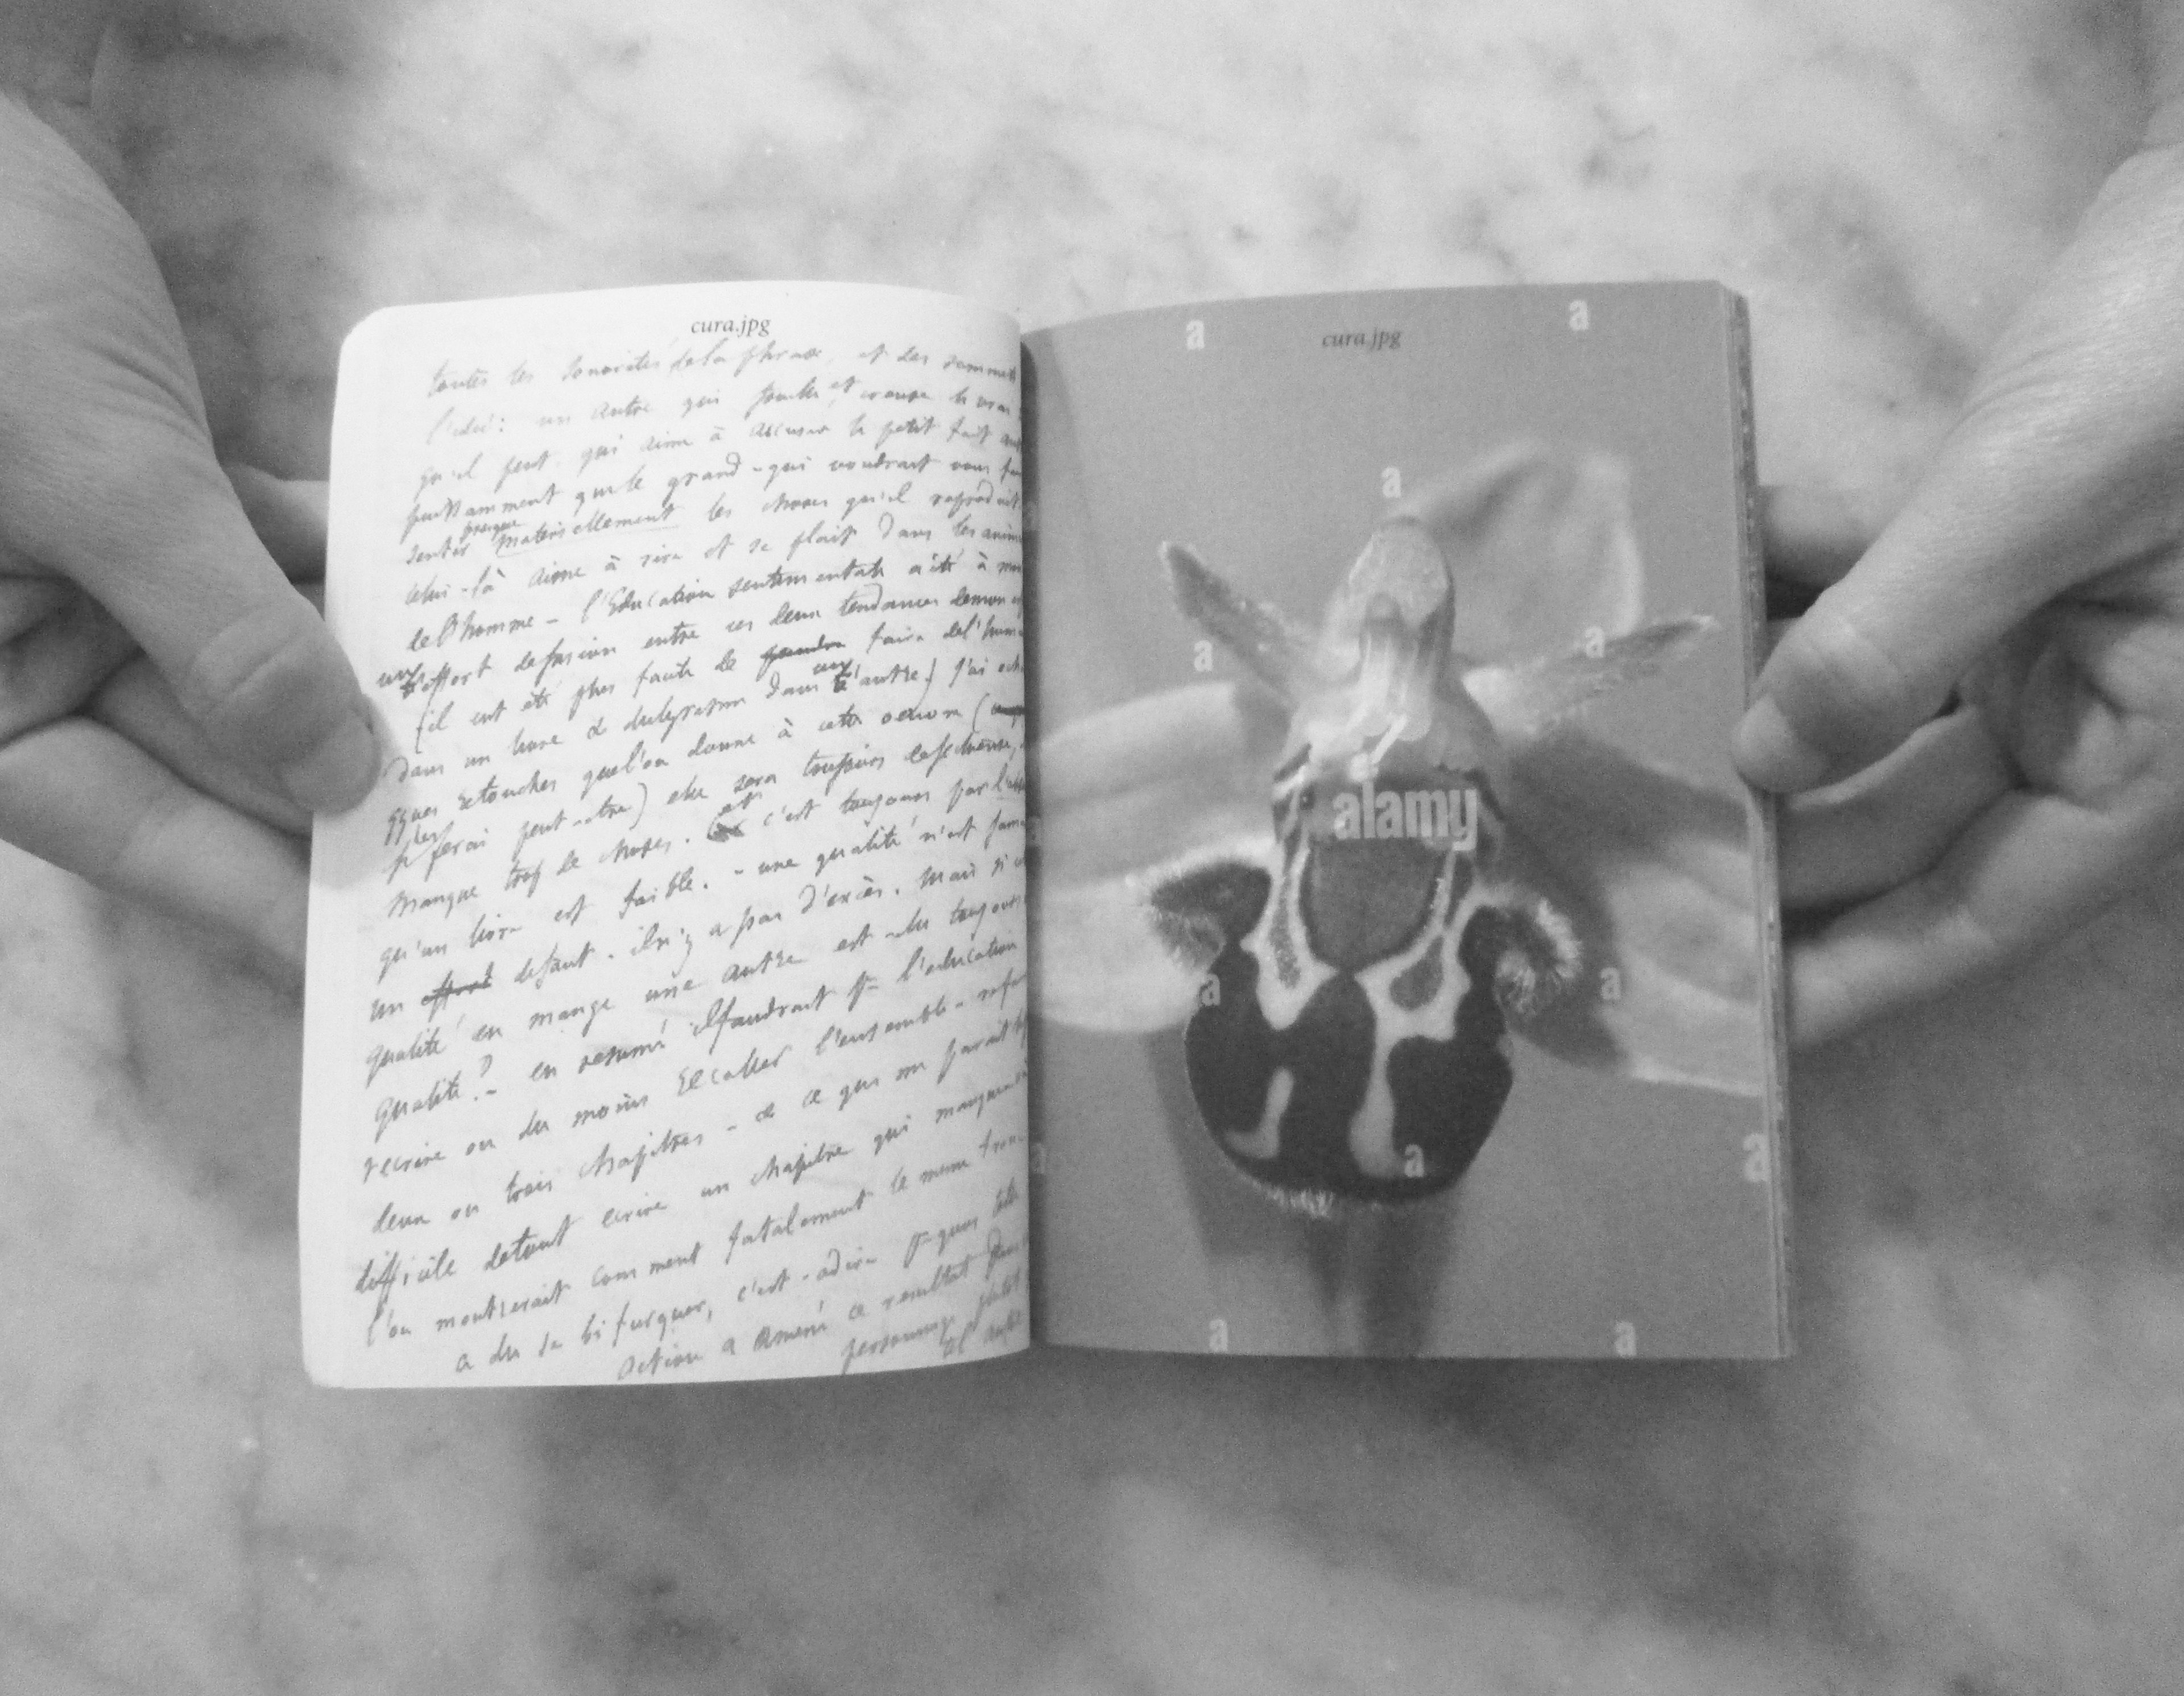 cura.jpg
toutes les sonorités de la phrase et des sommets
l'idée: un autre qui fouille et creuse le vrai
qu'il peut. qui aime à accuser le petit fait aussi
puissamment que le grand - qui voudrait vous faire
presque
sentir materiellement les choses qu'il reproduit
celui-là aime à rire et se plait dans les anim
de l'homme - l'Education sentimentale a été à mon
un effort de fusion entre ces deux tendances de mon
(il eut été plus facile de faire de l'humain
un
dans un livre & du lyrisme dans l'autre) j'ai
retouches que l'on donne à cette oeuvre (
les
ferai peut-etre) elle sera toujours defectueuse,
manque trop de choses. et c'est toujours par l'
qu'un livre est faible. - une qualité n'est jamais
un effort defaut. il n'y a pas d'excès. mais si
qualité en mange une autre est-elle toujours
qualité? - en resumé il faudrait pr l'education
recrire ou du moins recaller l'ensemble - refaire
deux ou trois chapitres - & ce qui me parait
difficile de tout ecrire un chapitre qui manque
l'on montrerait comment fatalement le meme tronc
a du se bifurquer, c'est-a dire pr quoi telle
action a amené ce resultat dans
personnage plutot
cura.jpg
a
a
a
a
a
alamy
a
a
a
a
a
a